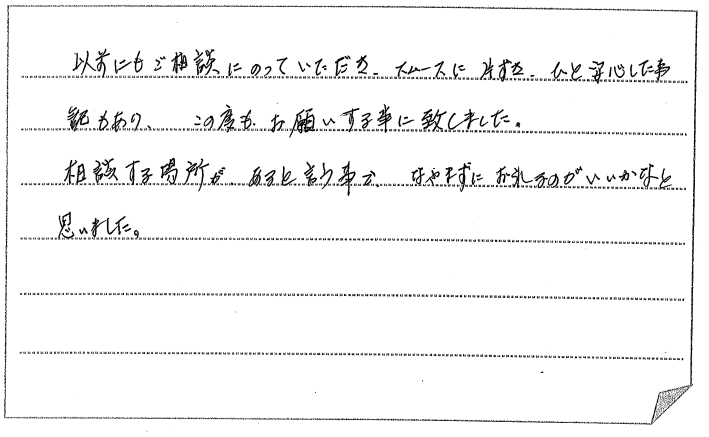 以前にもご相談にのっていただき、スムースに 片ずき、ひと安心した事
記もあり、 この度も、お願いする事に致しました。
相談する場所が、あると言う事で、 なやまずに おれるのがいいかなと
思いました。